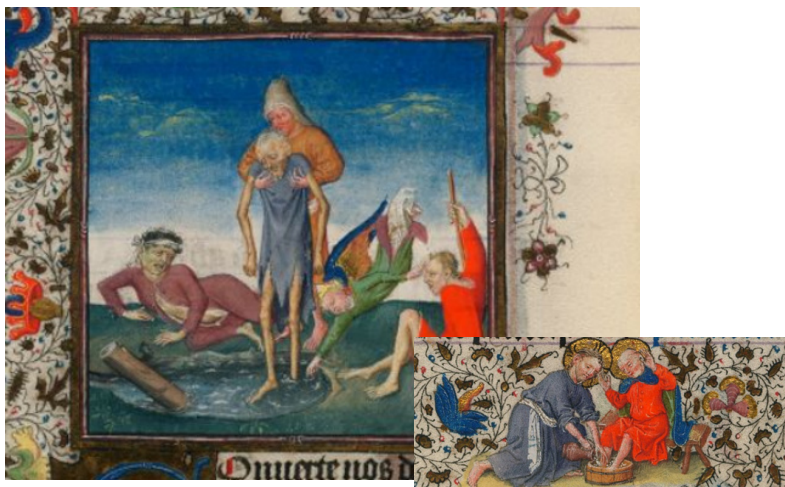 Onuerte nos d